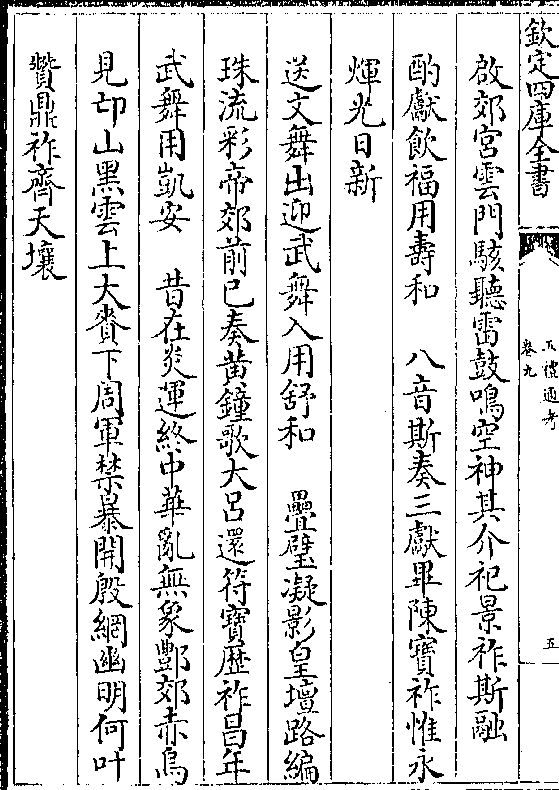 欽定四庫全書
五禮通考
卷九
五
啟郊宮雲門駭聽雷鼓鳴空神其介祀景祚斯融
酌獻飲福用壽和　八音斯奏三獻畢陳寶祚惟永
煇光日新
送文舞出迎武舞入用舒和　疊璧凝影皇壇路編
珠流彩帝郊前已奏黃鐘歌大呂還符寶歴祚昌年
武舞用凱安　昔在炎運終中華亂無象酆郊赤烏
見卬山黑雲上大賚下周軍禁暴開殷網幽明何叶
贊鼎祚齊天壤